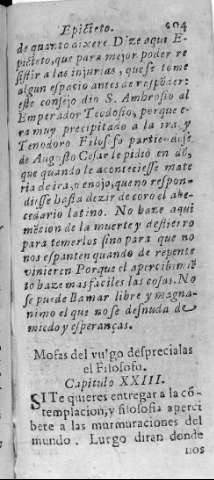 Epicteto. 604
de quanto dixere Dize aqui E-
picteto, que para mejor poder re
sistir a las injurias, que se tome
algun espacio antes de respõder:
este consejo dio S. Ambrosio al
Emperador Teodosio, porque e-
ra muy precipitado a la ira, y
Tenodoro Filosofo partiendose
de Augusto Cesar le pidió en dõ,
que quando le aconteciesse mate
ria de ira, o enojo, que no respon-
diesse hasta dezir de coro el abe-
cedario latino. No haze aqui
mẽcion de la muerte y destierro
para temerlos sino para que no
nos espanten quando de repente
vinieren Porque el apercibimiẽ
to haze mas faciles las cosas. No
se puede llamar libre y magna-
nimo el que no se desnuda de
miedo y esperanças.
Mofas del vulgo desprecialas
el Filosofo.
Capitulo XXIII.
SI Te quieres entregar a la cõ-
templacion, y filosofia aperci
bete a las murmuraciones del
mundo. Luego diran donde
nos